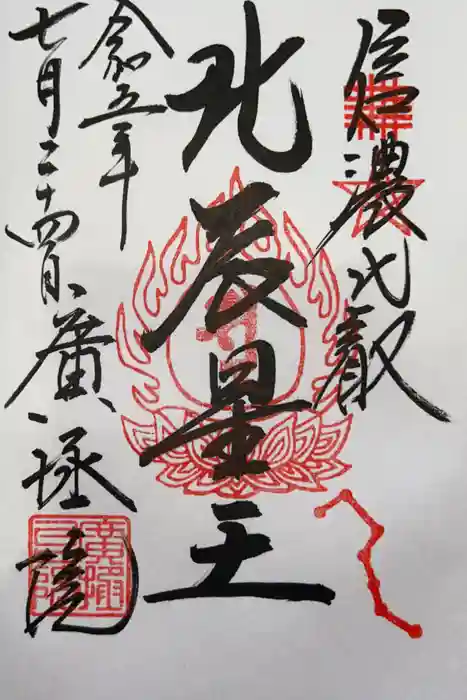 信濃比叡
北辰星王
令和五年
七月二十四日
廣拯院